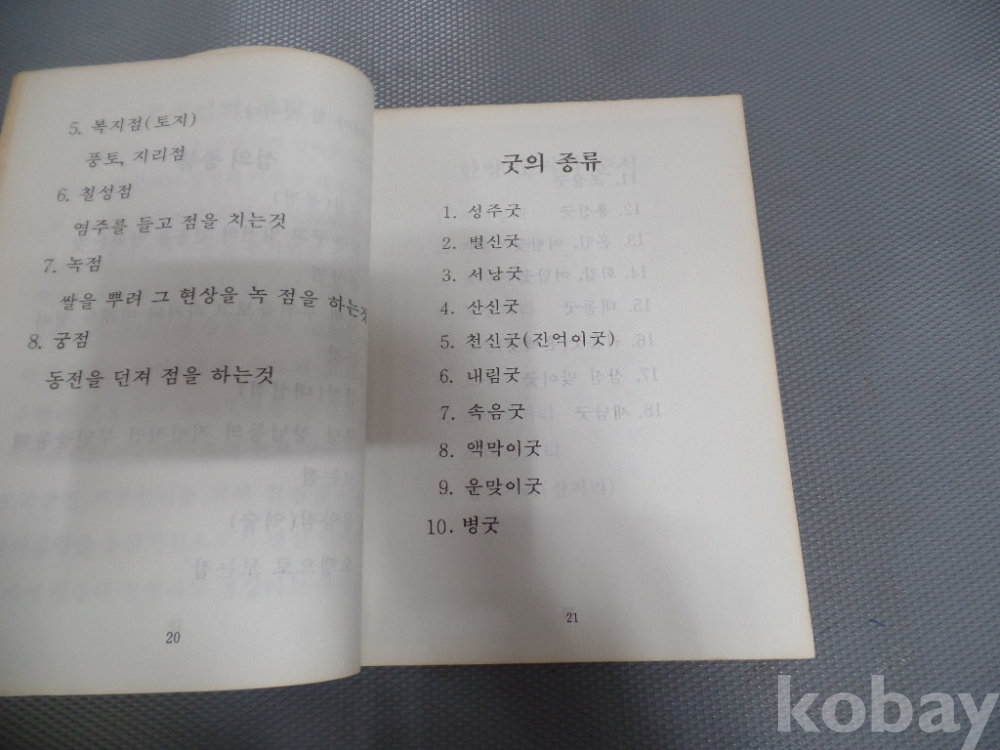 5. 복지점(토지)
풍토, 지리점
6. 칠성점
염주를 들고 점을 치는것
7. 녹점
쌀을 뿌려 그 현상을 녹 점을 하는것
8. 궁점
동전을 던져 점을 하는것
20
굿의 종류
1. 성주굿
2. 별신굿
3. 서낭굿
4. 산신굿
5. 천신굿(진억이굿)
6. 내림굿
7. 속음굿
8. 액막이굿
9. 운맞이굿
10. 병굿
21
kobay